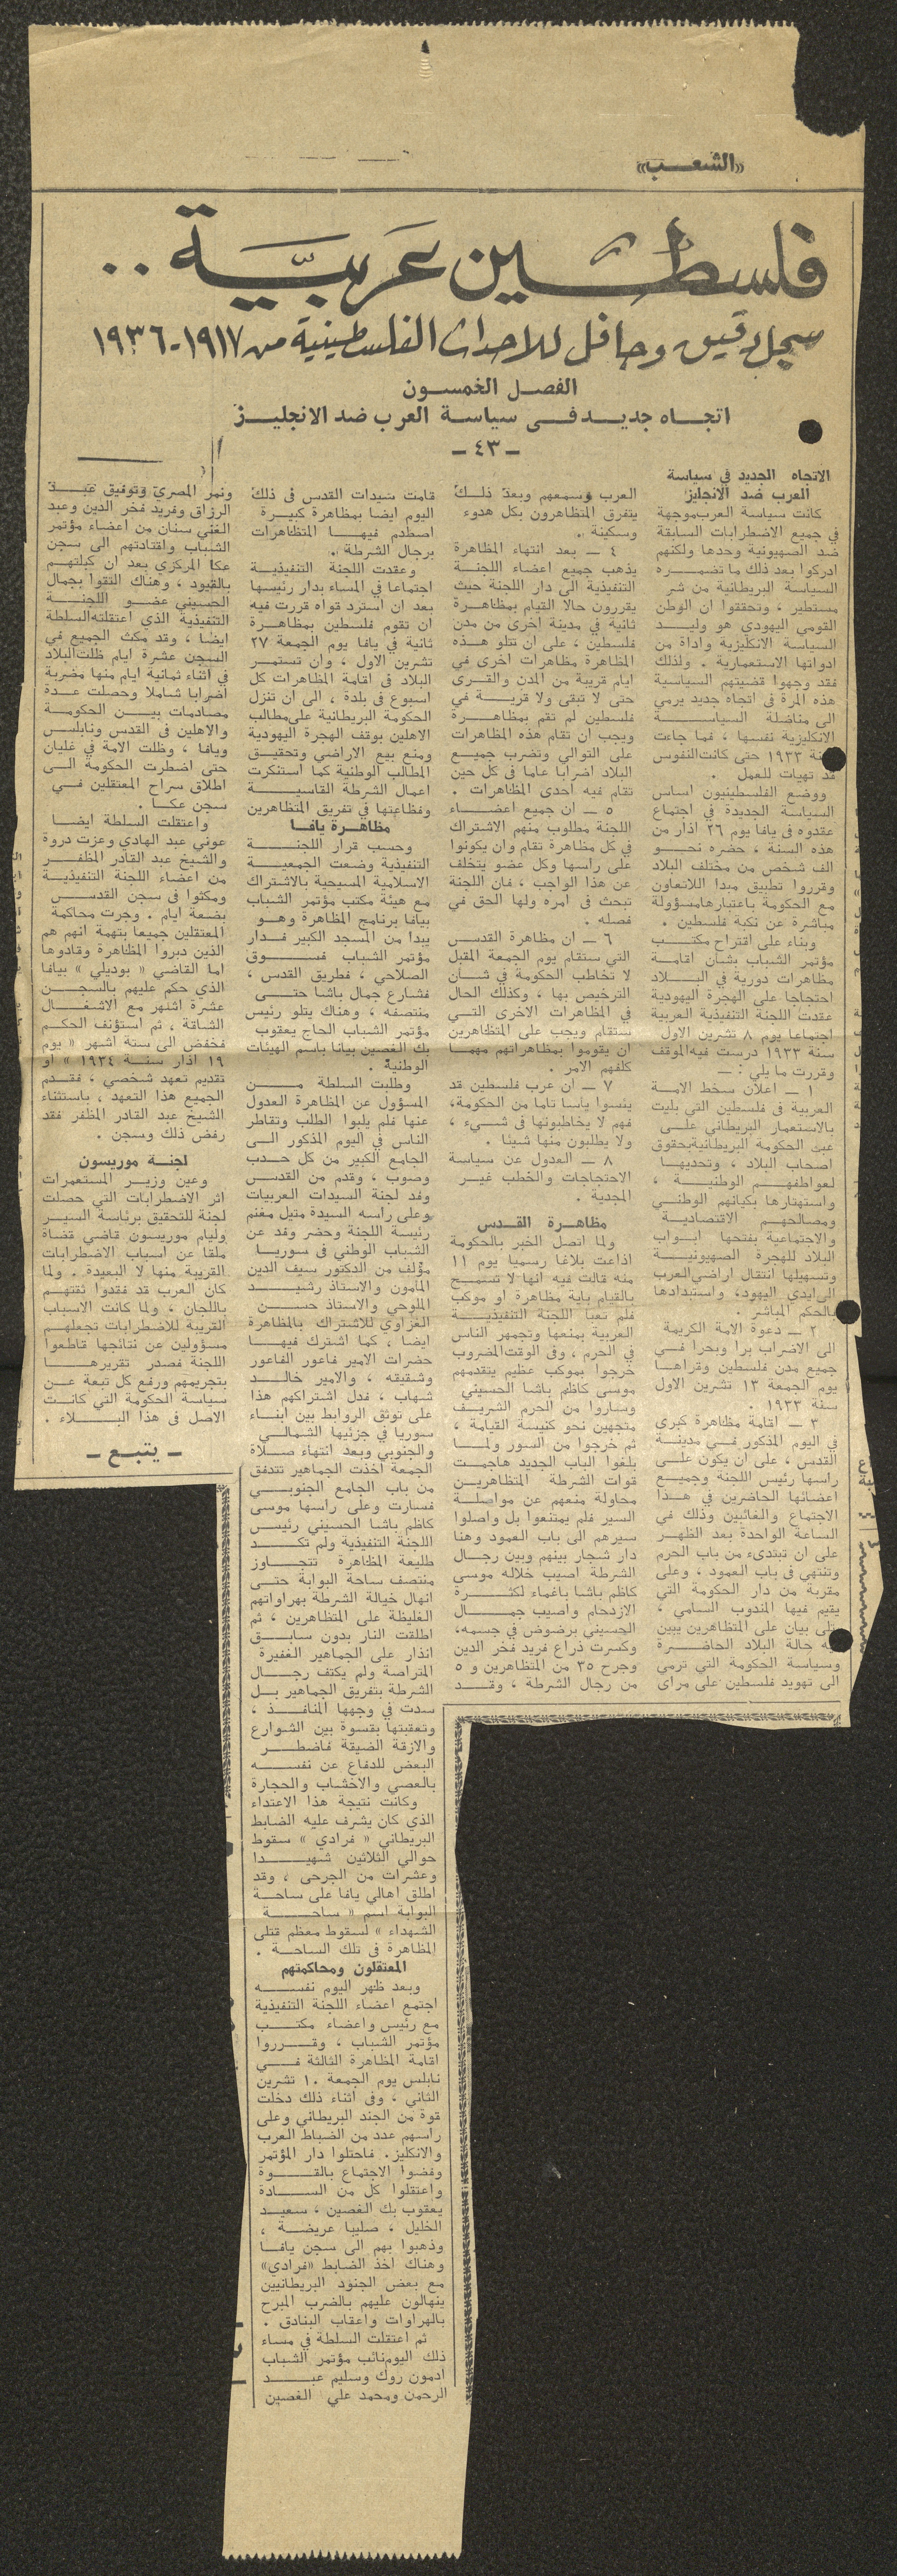 «الشعب»
فلسطين عربية ..
سجل دقيق وحافل للاحداث الفلسطينية من ١٩١٧ـ١٩٣٦
الفصل الخمسون
اتجاه جديد فى سياسة العرب ضد الانجليز
ـ ٤٣ ـ
الاتجاه الجديد في سياسة
العرب ضد الانجليز
كانت سياسة العرب موجهة
في جميع الاضطرابات السابقة
ضد الصهيونية وحدها ولكنهم
ادركوا بعد ذلك ما تضمره
السياسة البريطانية من شر
مستطير ، وتحققوا ان الوطن
القومي اليهودي هو وليد
السياسة الانكليزية واداة من
ادواتها الاستعمارية . ولذلك
فقد وجهوا قضيتهم السياسية
هذه المرة في اتجاه جديد يرمي
الى مناضلة السياسة
الانكليزية نفسها ، فما جاءت
سنة ١٩٣٣ حتى كانت النفوس
قد تهيات للعمل .
ووضع الفلسطينيون اساس
السياسة الجديدة في اجتماع
عقدوه فى يافا يوم ٢٦ اذار من
هذه السنة ، حضره نحو
الف شخص من مختلف البلاد
وقرروا تطبيق مبدا اللاتعاون
مع الحكومة باعتبارها مسؤولة
مباشرة عن نكبة فلسطين .
وبناء على اقتراح مكتب
مؤتمر الشباب بشان اقامة
مظاهرات دورية في البلاد
احتجاجا على الهجرة اليهودية
عقدت اللجنة التنفيذية العربية
اجتماعا يوم ٨ تشرين الاول
سنة ١٩٣٣ درست فيه الموقف
وقررت ما يلي : ـ
١ ـ اعلان سخط الامة
العربية في فلسطين التي بليت
بالاستعمار البريطاني على
عبث الحكومة البريطانية بحقوق
اصحاب البلاد ، وتحديها
لعواطفهم الوطنية ،
واستهتارها بكيانهم الوطني
ومصالحهم الاقتصادية
والاجتماعية بفتحها ابواب
البلاد للهجرة الصهيونية
وتسهيلها انتقال اراضي العرب
الى ايدي اليهود، واستبدادها
بالحكم المباشر .
٢ ـ دعوة الامة الكريمة
الى الاضراب برا وبحرا في
جميع مدن فلسطين وقراها
يوم الجمعة ١٣ تشرين الاول
سنة ١٩٣٣ .
٣ ـ اقامة مظاهرة كبرى
في اليوم المذكور في مدينة
القدس ، على ان يكون على
راسها رئيس اللجنة وجميع
اعضائها الحاضرين في هذا
الاجتماع والغائبين وذلك في
الساعة الواحدة بعد الظهر
على ان تبتدىء من باب الحرم
وتنتهي في باب العمود ، وعلى
مقربة من دار الحكومة التي
يقيم فيها المندوب السامي ،
يتلى بيان على المتظاهرين يبين
فيه حالة البلاد الحاضرة
وسياسة الحكومة التي ترمي
الى تهويد فلسطين على مراى
العرب ومسمعهم وبعد ذلك
يتفرق المتظاهرون بكل هدوء
وسكينة .
٤ ـ بعد انتهاء المظاهرة
يذهب جميع اعضاء اللجنة
التنفيذية الى دار اللجنة حيث
يقررون حالا القيام بمظاهرة
ثانية في مدينة اخرى من مدن
فلسطين ، على ان تتلو هذه
المظاهرة مظاهرات اخرى في
ايام قريبة من المدن والقرى
حتى لا تبقى ولا قرية في
فلسطين لم تقم بمظاهرة
ويجب ان تقام هذه المظاهرات
على التوالي وتضرب جميع
البلاد اضرابا عاما في كل حين
تقام فيه احدى المظاهرات .
٥ ـ ان جميع اعضاء
اللجنة مطلوب منهم الاشتراك
في كل مظاهرة تقام وان يكونوا
على راسها وكل عضو يتخلف
عن هذا الواجب ، فان اللجنة
تبحث في امره ولها الحق في
فصله .
٦ ـ ان مظاهرة القدس
التي ستقام يوم الجمعة المقبل
لا تخاطب الحكومة في شان
الترخيص بها ، وكذلك الحال
في المظاهرات الاخرى التي
ستقام ويجب على المتظاهرين
ان يقوموا بمظاهراتهم مهما
كلفهم الامر .
٧ ـ ان عرب فلسطين قد
يئسوا ياسا تاما من الحكومة،
فهم لا يخاطبونها في شيء ،
ولا يطلبون منها شيئا .
٨ ـ العدول عن سياسة
الاحتجاجات والخطب غير
المجدية .
مظاهرة القدس
ولما اتصل الخبر بالحكومة
اذاعت بلاغا رسميا يوم ١١
منه قالت فيه انها لا تسمح
بالقيام باية مظاهرة او موكب
فلم تعبا اللجنة التنفيذية
العربية بمنعها وتجمهر الناس
في الحرم ، وفى الوقت المضروب
خرجوا بموكب عظيم يتقدمهم
موسى كاظم باشا الحسيني
وساروا من الحرم الشريف
متجهين نحو كنيسة القيامة ،
ثم خرجوا من السور ولما
بلغوا الباب الجديد هاجمت
قوات الشرطة المتظاهرين
محاولة منعهم عن مواصلة
السير فلم يمتنعوا بل واصلوا
سيرهم الى باب العمود وهنا
دار شجار بينهم وبين رجال
الشرطة اصيب خلاله موسى
كاظم باشا باغماء لكثرة
الازدحام واصيب جمال
الحسيني برضوض في جسمه،
وكسرت ذراع فريد فخر الدين
وجرح ٣٥ من المتظاهرين و ٥
من رجال الشرطة ، وقد
قامت سيدات القدس فى ذلك
اليوم ايضا بمظاهرة كبيرة
اصطدم فيها المتظاهرات
برجال الشرطة .
وعقدت اللجنة التنفيذية
اجتماعا في المساء بدار رئيسها
بعد ان استرد قواه قررت فيه
ان تقوم فلسطين بمظاهرة
ثانية في يافا يوم الجمعة ٢٧
تشرين الاول ، وان تستمر
البلاد فى اقامة المظاهرات كل
اسبوع فى بلدة ، الى ان تنزل
الحكومة البريطانية على مطالب
الاهلين بوقف الهجرة اليهودية
ومنع بيع الاراضي وتحقيق
المطالب الوطنية كما استنكرت
اعمال الشرطة القاسية
وفظاعتها في تفريق المتظاهرين
مظاهرة يافا
وحسب قرار اللجنة
التنفيذية وضعت الجمعية
الاسلامية المسيحية بالاشتراك
مع هيئة مكتب مؤتمر الشباب
بيافا برنامج المظاهرة وهو
يبدا من المسجد الكبير فدار
مؤتمر الشباب فسوق
الصلاحي ، فطريق القدس ،
فشارع جمال باشا حتى
منتصفه ، وهناك يتلو رئيس
مؤتمر الشباب الحاج يعقوب
بك الغصين بيانا باسم الهيئات
الوطنية .
وطلبت السلطة من
المسؤول عن المظاهرة العدول
عنها فلم يلبوا الطلب وتقاطر
الناس في اليوم المذكور الى
الجامع الكبير من كل حدب
وصوب ، وقدم من القدس
وفد لجنة السيدات العربيات
وعلى راسه السيدة متيل مغنم
رئيسة اللجنة وحضر وفد عن
الشباب الوطنى فى سوريا
مؤلف من الدكتور سيف الدين
المامون والاستاذ رشيد
الملوحي والاستاذ حسن
الغزاوي للاشتراك بالمظاهرة
ايضا ، كما اشترك فيها
حضرات الامير فاعور الفاعور
وشقيقه ، والامير خالد
شهاب ، فدل اشتراكهم هذا
على توثق الروابط بين ابناء
سوريا في جزئيها الشمالي
والجنوبي وبعد انتهاء صلاة
الجمعة اخذت الجماهير تتدفق
من باب الجامع الجنوبي
فسارت وعلى راسها موسى
كاظم باشا الحسيني رئيس
اللجنة التنفيذية ولم تكد
طليعة المظاهرة تتجاوز
منتصف ساحة البوابة حتى
انهال خيالة الشرطة بهراواتهم
الغليظة على المتظاهرين ، ثم
اطلقت النار بدون سابق
انذار على الجماهير الغفيرة
المتراصة ولم يكتف رجال
الشرطة بتفريق الجماهير بل
سدت في وجهها المنافذ ،
وتعقبتها بقسوة بين الشوارع
والازقة الضيقة فاضطر
البعض للدفاع عن نفسه
بالعصي والاخشاب والحجارة
وكانت نتيجة هذا الاعتداء
الذي كان يشرف عليه الضابط
البريطاني « فرادي » سقوط
حوالي الثلاثين شهيدا
وعشرات من الجرحى ، وقد
اطلق اهالي يافا على ساحة
البوابة اسم « ساحة
الشهداء » لسقوط معظم قتلى
المظاهرة فى تلك الساحة .
المعتقلون ومحاكمتهم
وبعد ظهر اليوم نفسه
اجتمع اعضاء اللجنة التنفيذية
مع رئيس واعضاء مكتب
مؤتمر الشباب ، وقرروا
اقامة المظاهرة الثالثة في
نابلس يوم الجمعة ١٠ تشرين
الثاني ، وفى اثناء ذلك دخلت
قوة من الجند البريطاني وعلى
راسهم عدد من الضباط العرب
والانكليز. فاحتلوا دار المؤتمر
وفضوا الاجتماع بالقوة
واعتقلوا كل من السادة
يعقوب بك الغصين ، سعيد
الخليل ، صليبا عريضة ،
وذهبوا بهم الى سجن يافا
وهناك اخذ الضابط «فرادي»
مع بعض الجنود البريطانيين
ينهالون عليهم بالضرب المبرح
بالهراوات واعقاب البنادق .
ثم اعتقلت السلطة في مساء
ذلك اليوم نائب مؤتمر الشباب
ادمون روك وسليم عبد
الرحمن ومحمد علي الغصين
ونمر المصري وتوفيق عبد
الرزاق وفريد فخر الدين وعبد
الغني سنان من اعضاء مؤتمر
الشباب واقتادتهم الى سجن
عكا المركزي بعد ان كبلتهم
بالقيود ، وهناك التقوا بجمال
الحسيني عضو اللجنة
التنفيذية الذي اعتقلته السلطة
ايضا ، وقد مكث الجميع في
السجن عشرة ايام ظلت البلاد
في اثناء ثمانية ايام منها مضربة
اضرابا شاملا وحصلت عدة
مصادمات بين الحكومة
والاهلين في القدس ونابلس
ويافا ، وظلت الامة في غليان
حتى اضطرت الحكومة الى
اطلاق سراح المعتقلين في
سجن عكا .
واعتقلت السلطة ايضا
عوني عبد الهادي وعزت دروة
والشيخ عبد القادر المظفر
من اعضاء اللجنة التنفيذية
ومكثوا فى سجن القدس
بضعة ايام . وجرت محاكمة
المعتقلين جميعا بتهمة انهم هم
الذين دبروا المظاهرة وقادوها
اما القاضي « بوديلي » بيافا
الذي حكم عليهم بالسجن
عشرة اشهر مع الاشغال
الشاقة ، ثم استؤنف الحكم
فخفض الى ستة اشهر « يوم
١٩ اذار سنة ١٩٣٤ » او
تقديم تعهد شخصي ، فقدم
الجميع هذا التعهد ، باستثناء
الشيخ عبد القادر المظفر فقد
رفض ذلك وسجن .
لجنة موريسون
وعين وزير المستعمرات
اثر الاضطرابات التي حصلت
لجنة للتحقيق برئاسة السير
وليام موريسون قاضي قضاة
ملقا عن اسباب الاضطرابات
القريبة منها لا البعيدة . ولما
كان العرب قد فقدوا ثقتهم
باللجان ، ولما كانت الاسباب
القريبة للاضطرابات تجعلهم
مسؤولين عن نتائجها قاطعوا
اللجنة فصدر تقريرها
بتجريمهم ورفع كل تبعة عن
سياسة الحكومة التي كانت
الاصل في هذا البلاء .
ـ يتبع ـ